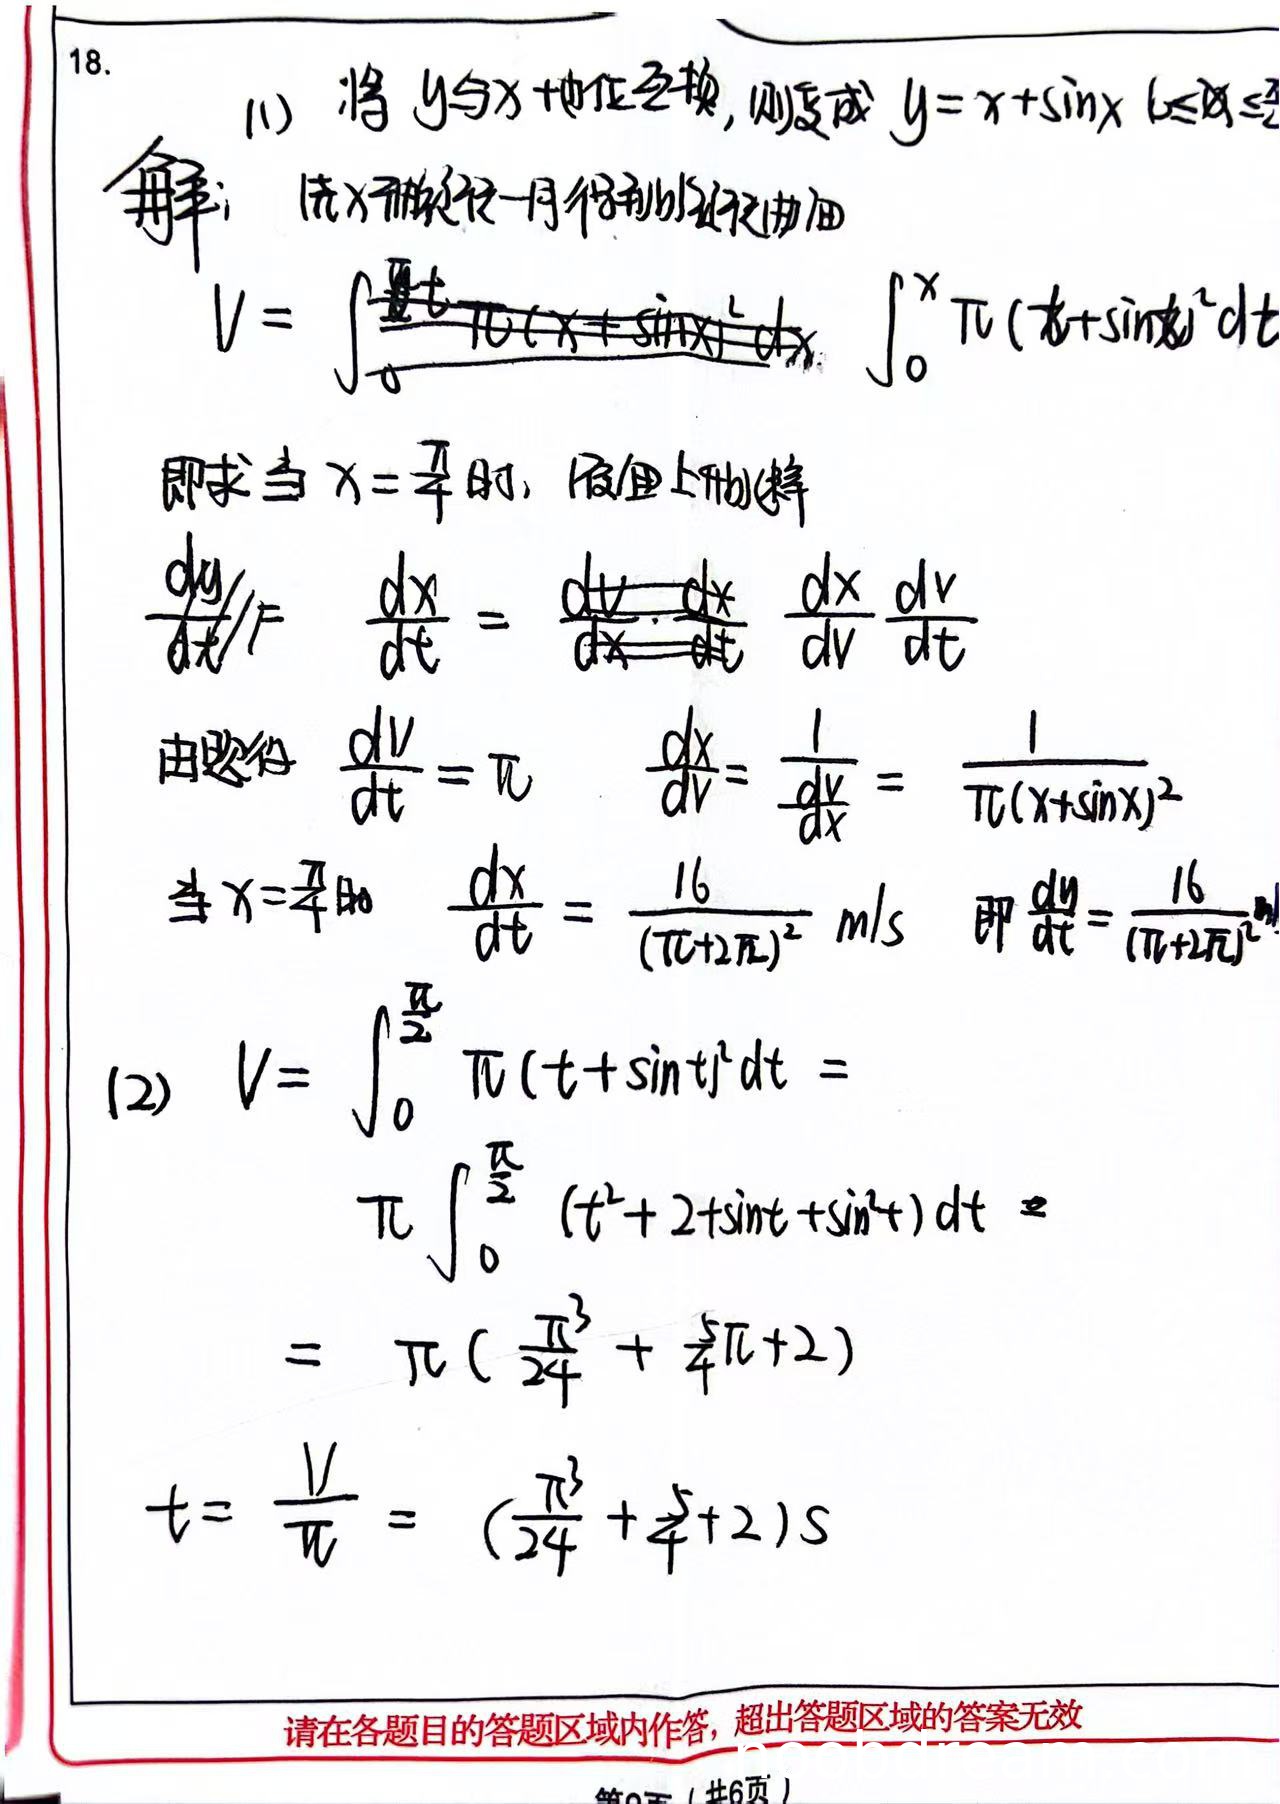 18.
(1) 将 y与x 地位互换, 则变成 y = x+sinx (0≤x≤π/2
解: 绕x轴旋转一周得到的旋转曲面
V = ∫₀ˣ π(t+sint)²dt
即求当 x = π/4 时, 液面上升的速率
dx/dt = dx/dv dv/dt
由题得 dV/dt = π dx/dV = 1/(dV/dx) = 1/(π(x+sinx)²)
当 x=π/4 时 dx/dt = 16/(π+2√2)² m/s 即 dy/dt = 16/(π+2√2)² m/
(2) V = ∫₀^(π/2) π(t+sint)²dt =
π ∫₀^(π/2) (t²+2tsint+sin²t)dt =
= π(π³/24 + 5/4π+2)
t = V/π = (π³/24 + 5/4+2)s
请在各题目的答题区域内作答, 超出答题区域的答案无效
(共6页)